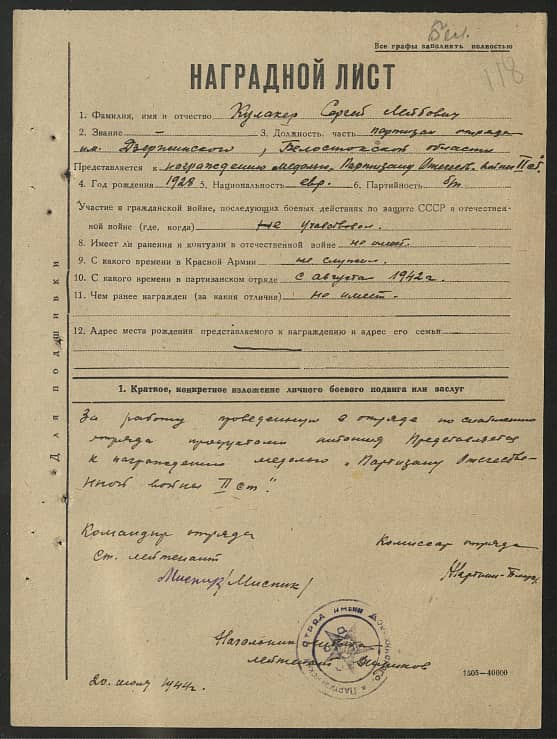 Бел.
Все графы заполнять полностью
118
НАГРАДНОЙ ЛИСТ
1. Фамилия, имя и отчество Кулакер Сергей Лейбович
2. Звание – 3. Должность, часть партизан отряда
им. Дзержинского, Белостокской области
Представляется к награждению медалью „Партизану Отечеств. войны II ст."
4. Год рождения 1928 5. Национальность евр. 6. Партийность б/п.
Участие в гражданской войне, последующих боевых действиях по защите СССР и отечествен-
ной войне (где, когда) не участвовал.
8. Имеет ли ранения и контузии в отечественной войне не имеет.
9. С какого времени в Красной Армии не служил.
10. С какого времени в партизанском отряде с августа 1942 г.
11. Чем ранее награжден (за какия отличия) не имеет.
12. Адрес места рождения представляемого к награждению и адрес его семьи
Для подшивки
1. Краткое, конкретное изложение личного боевого подвига или заслуг
За работу проведенную в отряде по снабжению
отряда продуктами питания Представляется
к награждению медалью „Партизану Отечестве-
нной войны II ст."
Командир отряда
Комиссар отряда
Ст. лейтенант
Мисник /Мисник/
Начальник
лейтенант
ОТРЯД ИМЕНИ
20. июля 1944 г.
1505—40000